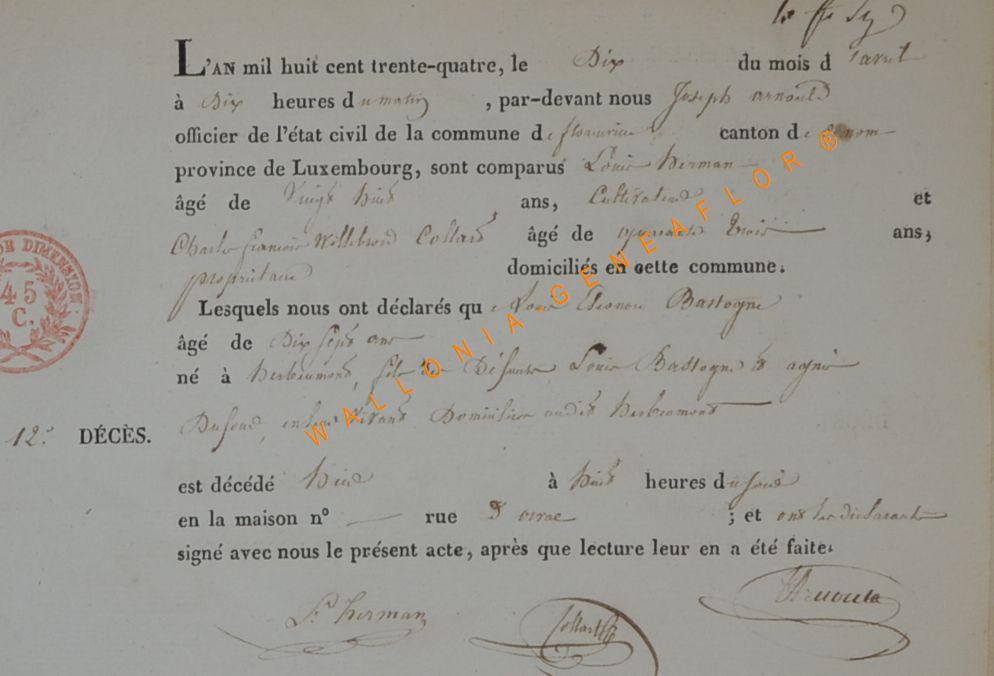 L'AN mil huit cent trente-quatre, le Dix du mois d'avril
à Dix heures du matin, par-devant nous Joseph arnould
officier de l'état civil de la commune de florenville canton d
province de Luxembourg, sont comparus Louis herman
âgé de Vingt huit ans, Cultivateur et
Charles françois Willebrord Collard âgé de trois ans,
propriétaire domiciliés en cette commune.
Lesquels nous ont déclarés que Louis Eléonore Bastogne
âgé de Dix sept ans
né à herbeumont, fils de Défunts Louis Bastogne et agnès
Dufour, en leur vivant Domiciliés audit herbeumont
12.e DÉCÈS.
est décédé hier à huit heures du soir
en la maison n° — rue D ; et ont les déclarants
signé avec nous le présent acte, après que lecture leur en a été faite.
Ls herman Collart Arnould
45
C.
WALLONIA GENEAFLOR ®